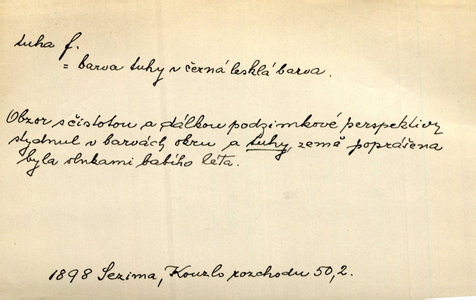 tuha f.
= barva tuhy v černá lesklá barva.
Obzor s čistotou a dálkou podzimkové perspektivy
stydnul v barvách okru a tuhy, země poprášena
byla slnkami babího léta.
1898 Sezima, Kouzlo rozchodu 50,2.